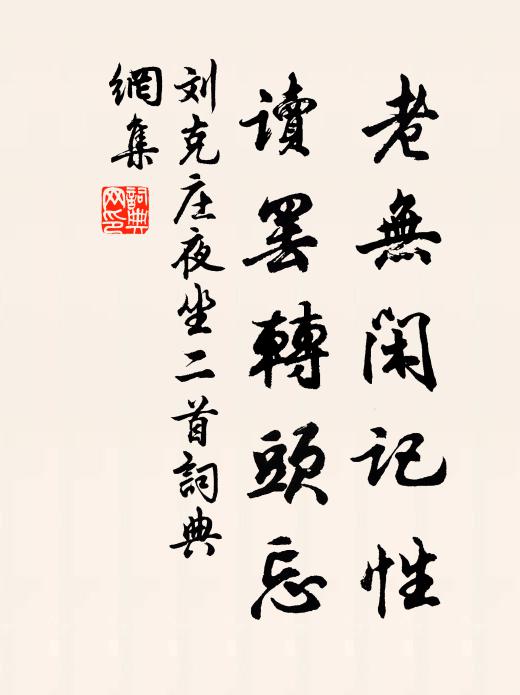 老無閑記性
讀罷轉頭忘
刘克庄夜坐二首詞典
網集
詞典網印